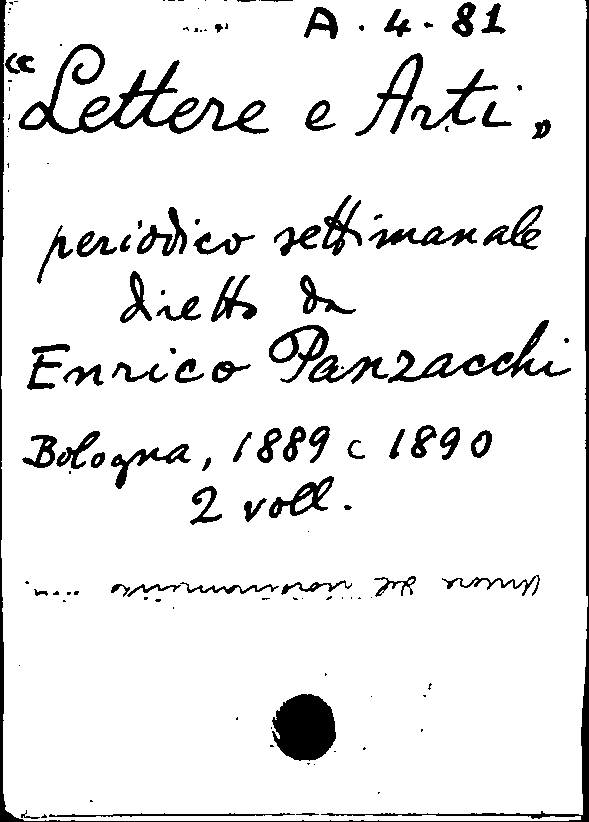 A. 4. 81
“Lettere e Arti„
periodico settimanale
diretto da
Enrico Panzacchi
Bologna, 1889 e 1890
2 voll.